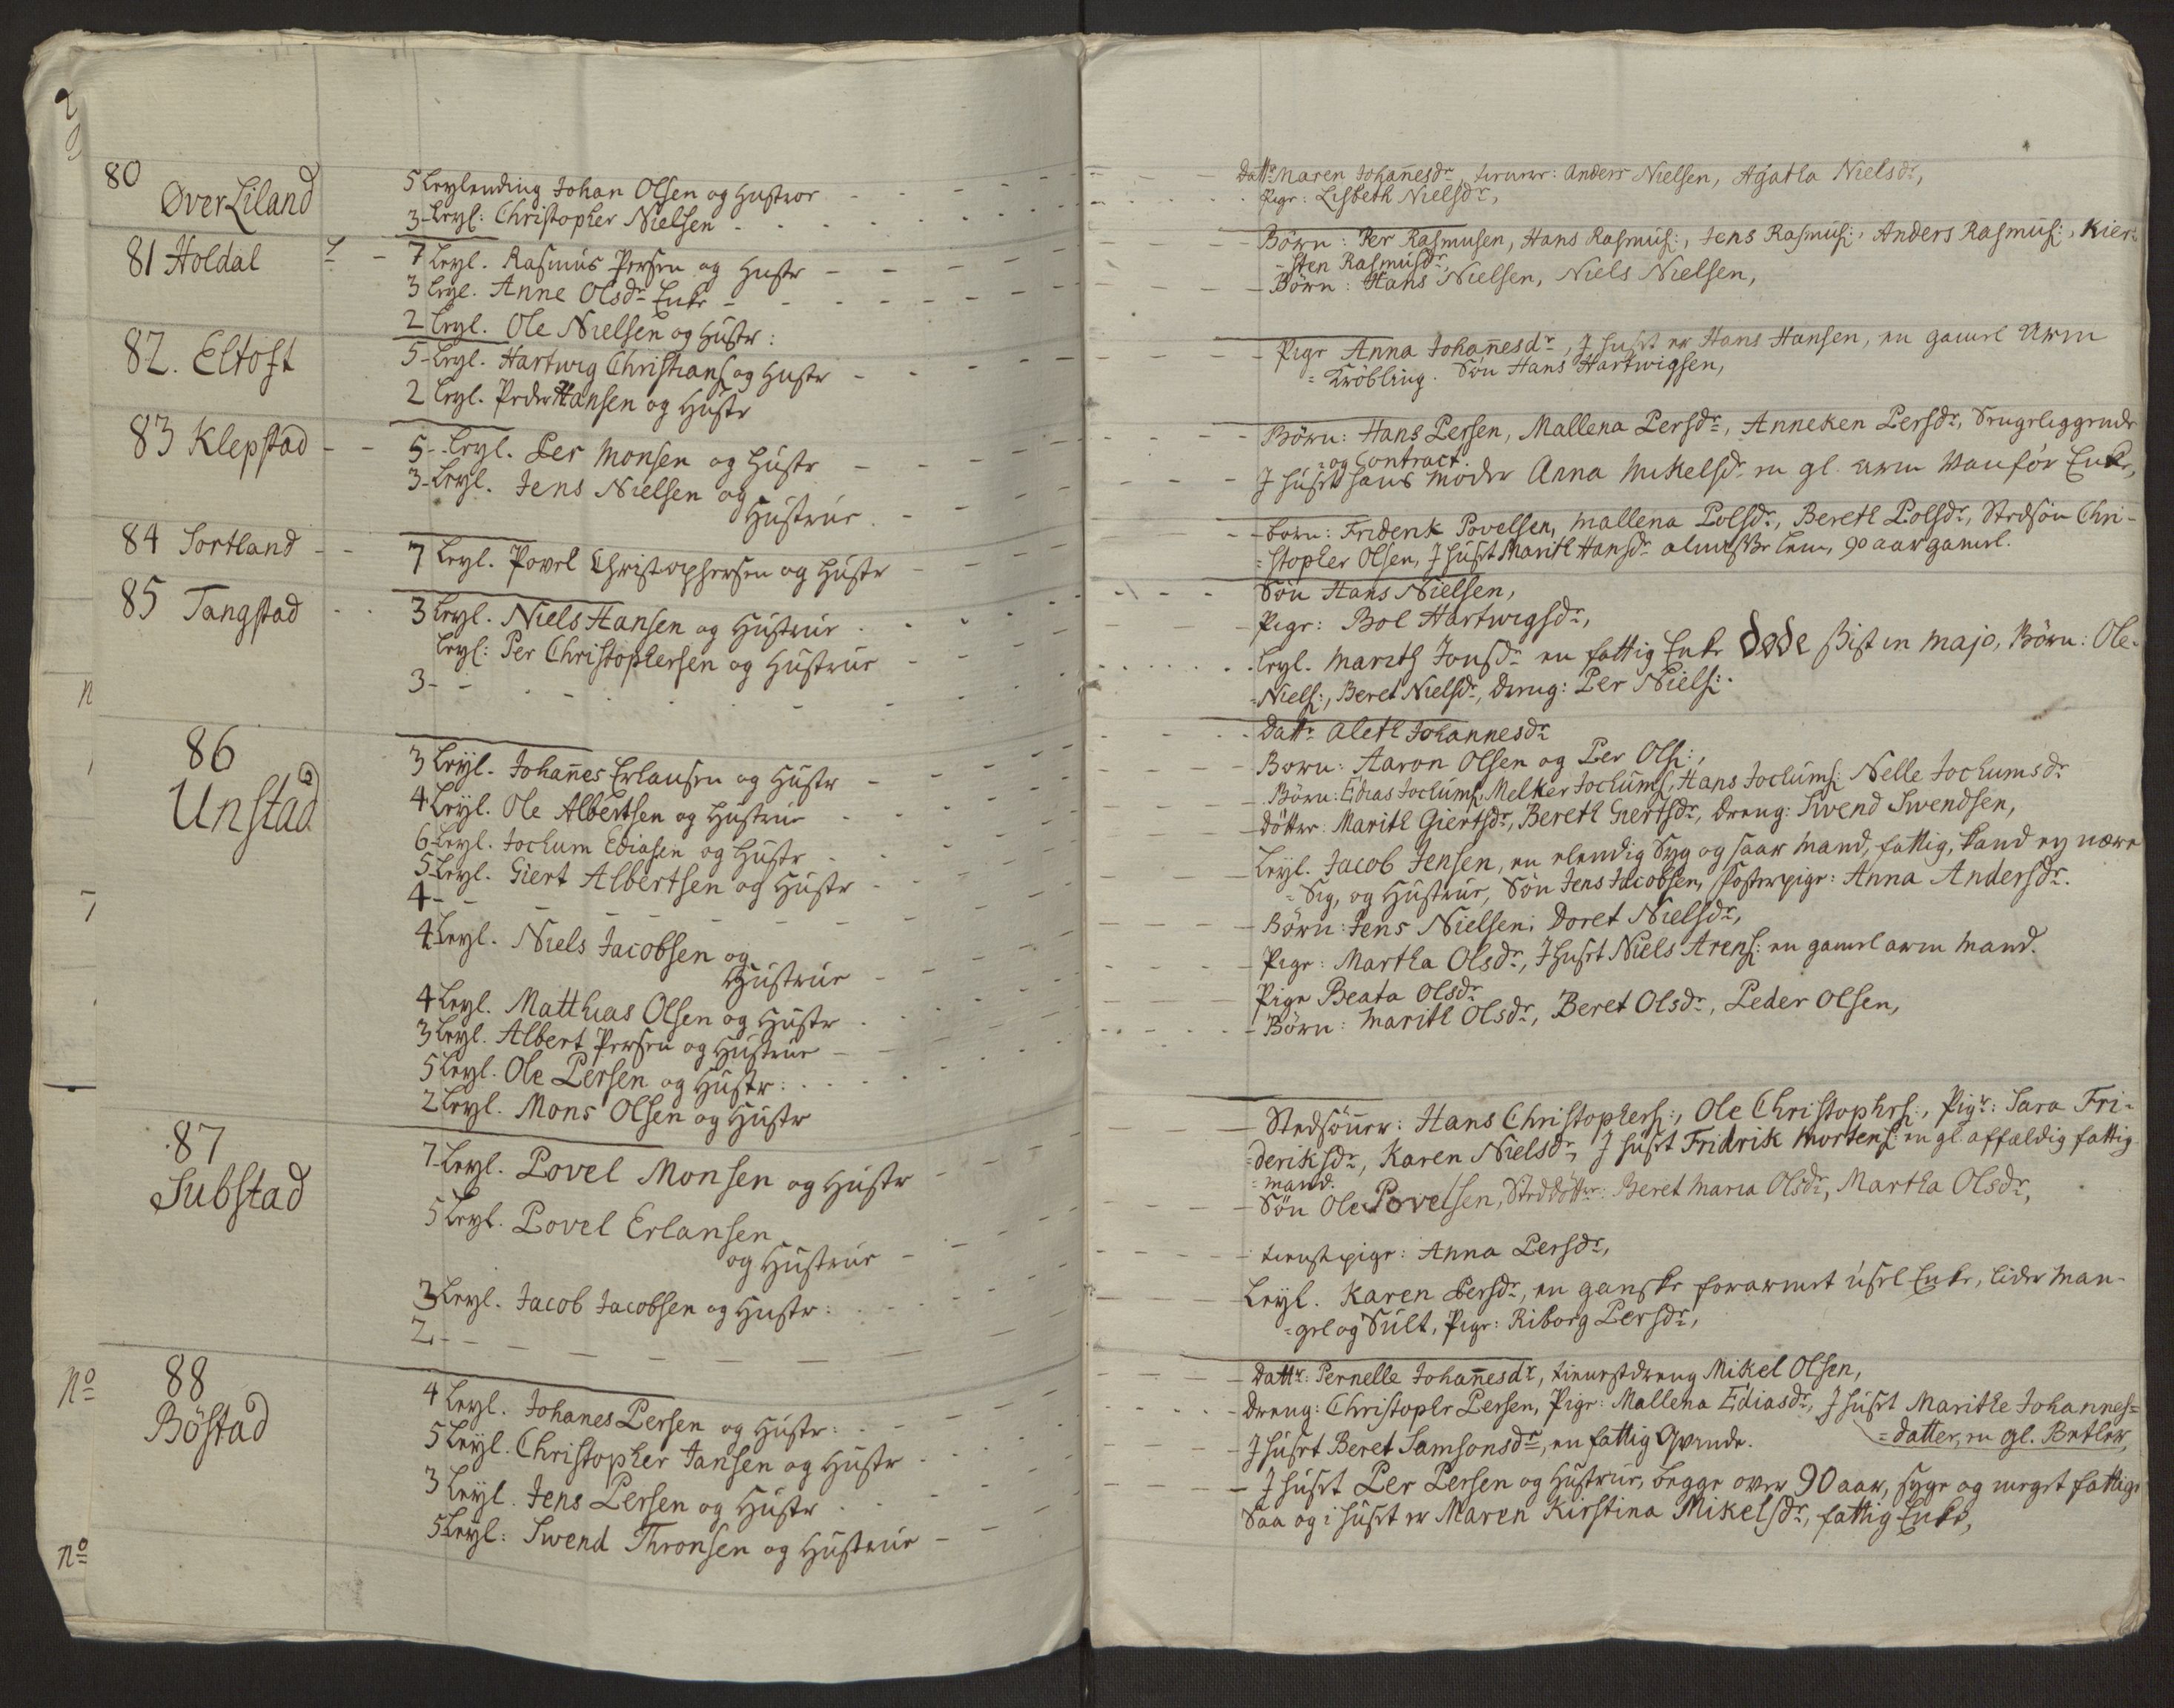 80
Øver Liland
5 Leylending Johan Olsen og Hustroe
3 Leyl: Christopher Nielsen
81 Holdal
7 Leyl. Rasmus Persen og Hustr
3 Leyl. Anne Olsdr Enke
2 Leyl. Ole Nielsen og Hustr:
82. Eltoft
5 Leyl. Hartwig Christians og Hustr
2 Leyl. Peder Hansen og Hustr
83 Klepstad
5 Leyl. Per Monsen og Hustr
3 Leyl. Jens Nielsen og
Hustrue
84 Sortland
7 Leyl. Povel Christophersen og Hustr
85 Tangstad
3 Leyl. Niels Hansen og Hustrue
Leyl: Per Christophersen og Hustrue
3
86
Unstad
3 Leyl. Johan̄es Erlansen og Hustr
4 Leyl. Ole Albertsen og Hustrue
6 Leyl. Jochum Ediasen og Hustr
5 Leyl. Giert Albertsen og Hustr
4
4 Leyl. Niels Jacobsen og
Hustrue
4 Leyl. Matthias Olsen og Hustr
3 Leyl. Albert Persen og Hustrue
5 Leyl. Ole Persen og Hustr:
2 Leyl. Mons Olsen og Hustr
87
Substad
7 Leyl. Povel Monsen og Hustr
5 Leyl. Povel Erlansen
og Hustrue
3 Leyl. Jacob Jacobsen og Hustr:
2
No
88
Böstad
4 Leyl. Johanes Persen og Hustr:
5 Leyl. Christopher Jansen og Hustr
3 Leyl. Jens Persen og Hustr
5 Leyl: Swend Thronsen og Hustrue
No
Dattr Maren Johan̄esdr, Anders Nielsen, Agatha Nielsdr,
Pige: Lisbeth Nielsdr,
Börn: Per Rasmusen, Hans Rasmus:, Jens Rasmus:, Anders Rasmus:, Kier-
sten Rasmusdr
Börn: Hans Nielsen, Niels Nielsen,
Pige Anna Johan̄esdr, J huset er Hans Hansen, en gamel Arm
= Kröbling. Sön Hans Hartwigsen,
Börn: Hans Persen, Mallena Persdr, Anneken Persdr, Sengeliggende
= og Contract.
J huset hans Moder Anna Mikelsdr en gl. arm Wanför Enke,
born: Friderik Povelsen, Mallena Polsdr, Bereth Polsdr, Stedsön Chri-
= stopher Olsen, J huset Marith Hansdr almisse lem, 90 aar gamel.
Sön Hans Nielsen,
Pige: Bol Hartwigsdr,
Leyl. Marith Jonsdr en fattig Enke döde sist in Majo, Börn: Ole
Niels:, Beret Nielsdr, dreng: Per Niels:
Dattr Aleth Johannesdr
Born: Aaron Olsen og Per Ols:,
Börn: Edias Jochums, Melker Jochums, Hans Jochums: Nelle Jochumsdr
Dötter: Marith Giertsdr, Bereth Giertsdr, dreng: Swend Swendsen,
Leyl. Jacob Jensen, en elendig Syg og saar Mand, fattig, kand ey nære
= Sig, og Hustrue, Sön Jens Jacobsen, Fosterpige: Anna Andersdr.
Börn: Jens Nielsen, Doret Nielsdr,
Pige: Martha Olsdr, J huset Niels Arens: en gamel arm Mand.
Pige Beata Olsdr
Börn: Marith Olsdr, Beret Olsdr, Peder Olsen,
Stedsön̄er: Hans Christophers:, Ole Christophrs:, Pigr: Sara Fri-
= deriksdr, Karen Nielsdr, J huset Fridrik Mortens: en gl. affældig fattig
= Mand.
Sön Ole Povelsen, Steddöttr: Beret Maria Olsdr, Martha Olsdr,
tienistpige: Anna Persdr,
Leyl. Karen Persdr, en ganske forarmet usel Enke, lider Man-
= gel og Sult, Pige: Riborg Persdr,
Dattr: Pernelle Johan̄esdr, tienestdreng Mikel Olsen,
Dreng: Christophr Persen, Pige: Mallena Ediasdr, J huset Marithe Johannes=
= datter, en gl. Betler,
J huset Beret Samsonsdr, en fattig Qvinde.
J huset Per Persen og Hustrue, begge over 90 aar, syge og meget fattige
Saa og i huset er Maren Kirstina Mikelsdr, fattig Enke,